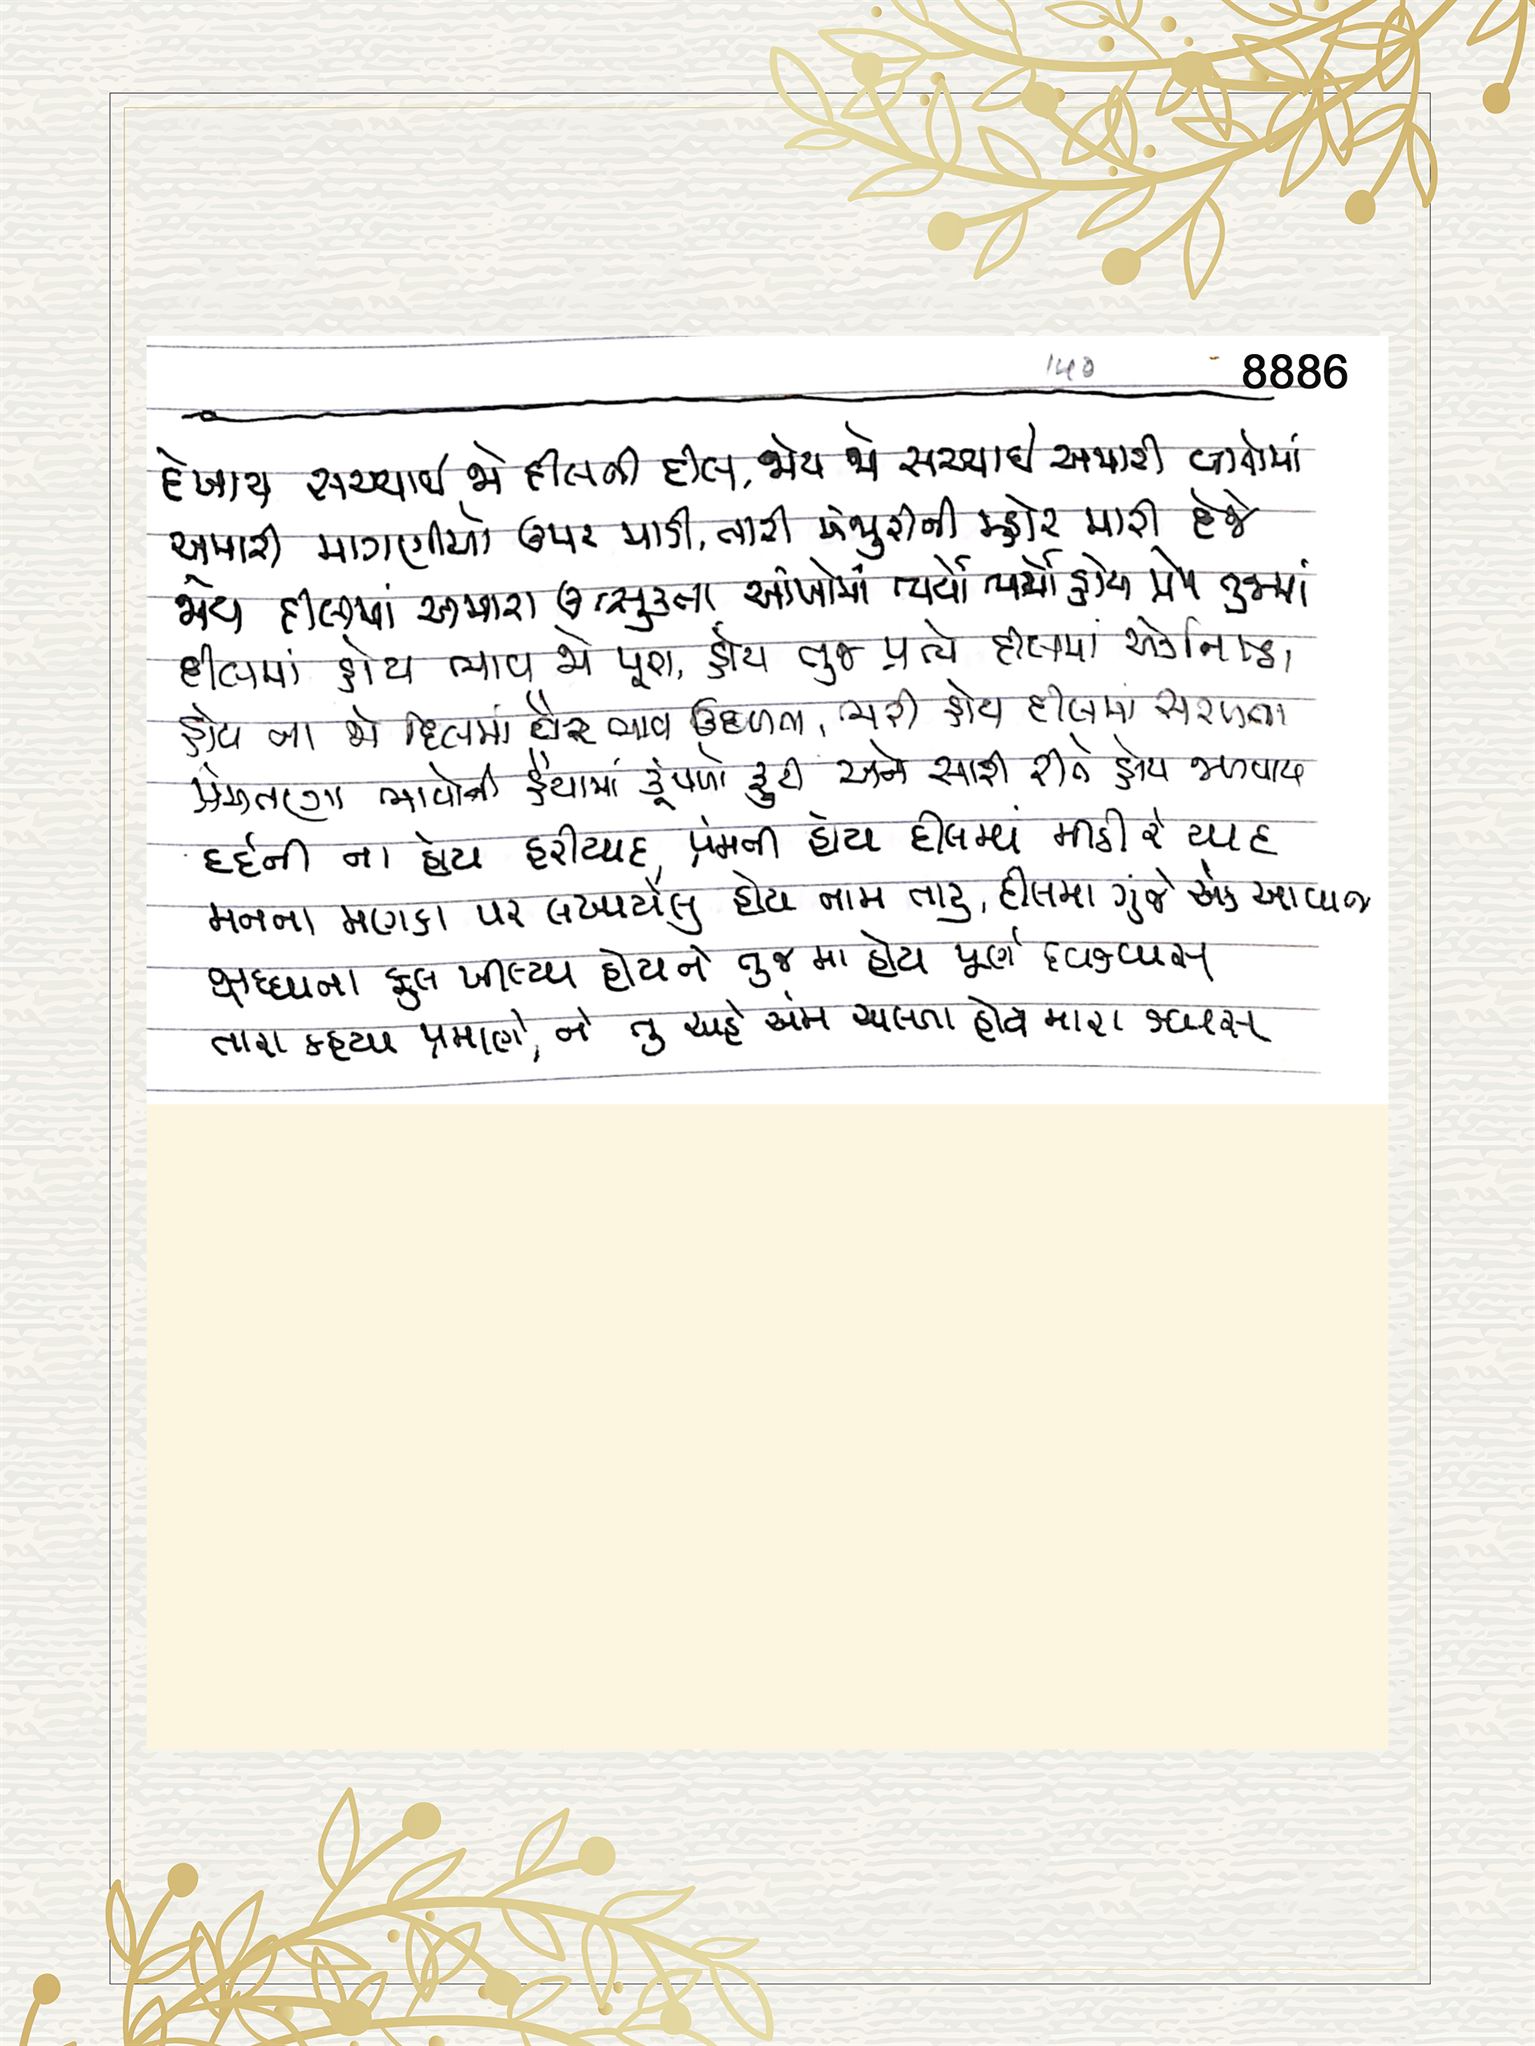 ૧૫૭ 8886
દેખાય સચ્ચાઈ જો દીલની દીલ, જોય જો સચ્ચાઈ અમારી વાતોમાં
અમારી માગણીયો ઉપર માડી, તારી મંજુરીની મ્હોર મારી દેજે
જોય દીલમાં અમારા ઉત્સુકતા આંખોમાં ભર્યો ભર્યો હોય પ્રેમ તુજમાં
દીલમાં હોય ભાવ જો પૂરા, હોય તુજ પ્રત્યે દીલમાં એકનિષ્ઠા
હોય ના જો દિલમાં વૈર ભાવ ઉછળતા, ભરી હોય દીલમાં સરળતા
પ્રેમતણા ભાવોની હૈયામાં કૂંપળો ફુટી અને સારી રીતે હોય જળવાય
દર્દની ના હોય ફરીયાદ, પ્રેમની હોય દીલમાં મીઠી રે યાદ
મનના મણકા પર લખાયેલુ હોય નામ તારુ, દીલમા ગુંજે એક આવાજ
શ્રધ્ધાના ફુલ ખીલ્યા હોય ને તુજ મા હોય પૂર્ણ વિશ્વાસ
તારા કહ્યા પ્રમાણે, ને તુ ચાહે એમ ચાલતા હોય મારા શ્વાસ